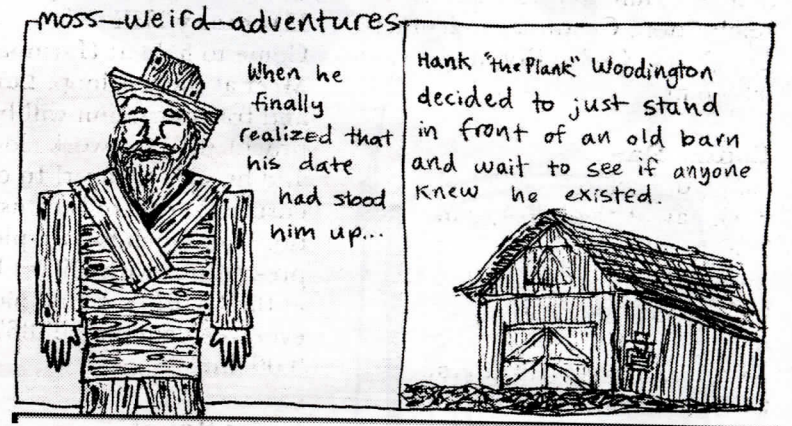 moss-weird-adventures
When he
finally
realized that
his date
had stood
him up...
Hank "the Plank" Woodington
decided to just stand
in front of an old barn
and wait to see if anyone
knew he existed.